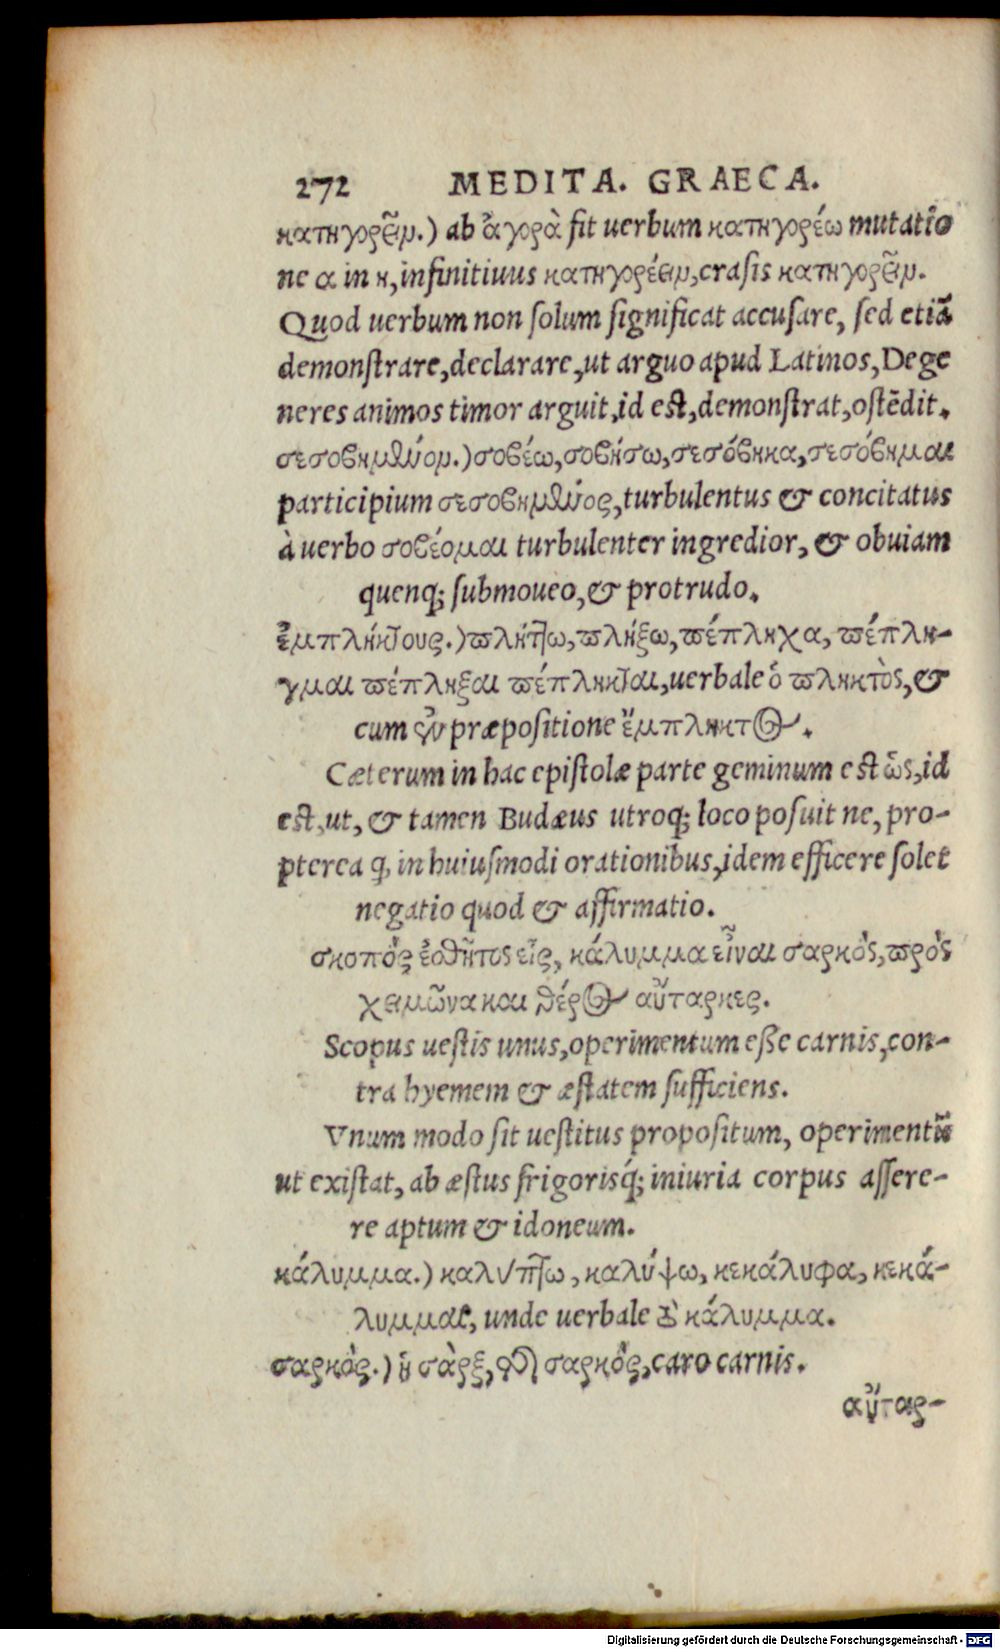 272 MEDITA. GRAECA.
κατηγορεῖν.) ab ἀγορὰ fit uerbum κατηγορέω mutatio
ne α in η, infinitiuus κατηγορέειν, crasis κατηγορεῖν.
Quod uerbum non ſolum ſignificat accuſare, ſed etiã
demonſtrare, declarare, ut arguo apud Latinos, Dege
neres animos timor arguit, id eſt, demonſtrat, oſtẽdit.
σεσοβημένον.) σοβέω, σοβήσω, σεσόβηκα, σεσόβημαι
participium σεσοβημένος, turbulentus & concitatus
à uerbo σοβέομαι turbulenter ingredior, & obuiam
quenq; ſubmoueo, & protrudo.
ἐμπλήκτους.) πλήττω, πλήξω, πέπληχα, πέπλη-
γμαι πέπληξαι πέπληκται, uerbale ὁ πληκτὸς, &
cum ἐν præpoſitione ἔμπληκτος.
Cæterum in hac epiſtolæ parte geminum eſt ὡς, id
eſt, ut, & tamen Budæus utroq; loco poſuit ne, pro-
pterea q, in huiuſmodi orationibus, idem efficere ſolet
negatio quod & affirmatio.
σκοπὸς ἐσθῆτος εἷς, κάλυμμα εἶναι σαρκὸς, πρὸς
χειμῶνα και θέρος αὔταρκες.
Scopus ueſtis unus, operimentum eſſe carnis, con-
tra hyemem & æſtatem ſufficiens.
Vnum modo ſit ueſtitus propoſitum, operimentũ
ut exiſtat, ab æſtus frigorisq́; iniuria corpus aſſere-
re aptum & idoneum.
κάλυμμα.) καλύπτω, καλύψω, κεκάλυφα, κεκά-
λυμμαι, unde uerbale τὸ κάλυμμα.
σαρκός.) ἡ σὰρξ, τῆς σαρκὸς, caro carnis.
αὔταρ-
Digitalisierung gefördert durch die Deutsche Forschungsgemeinschaft - DFG